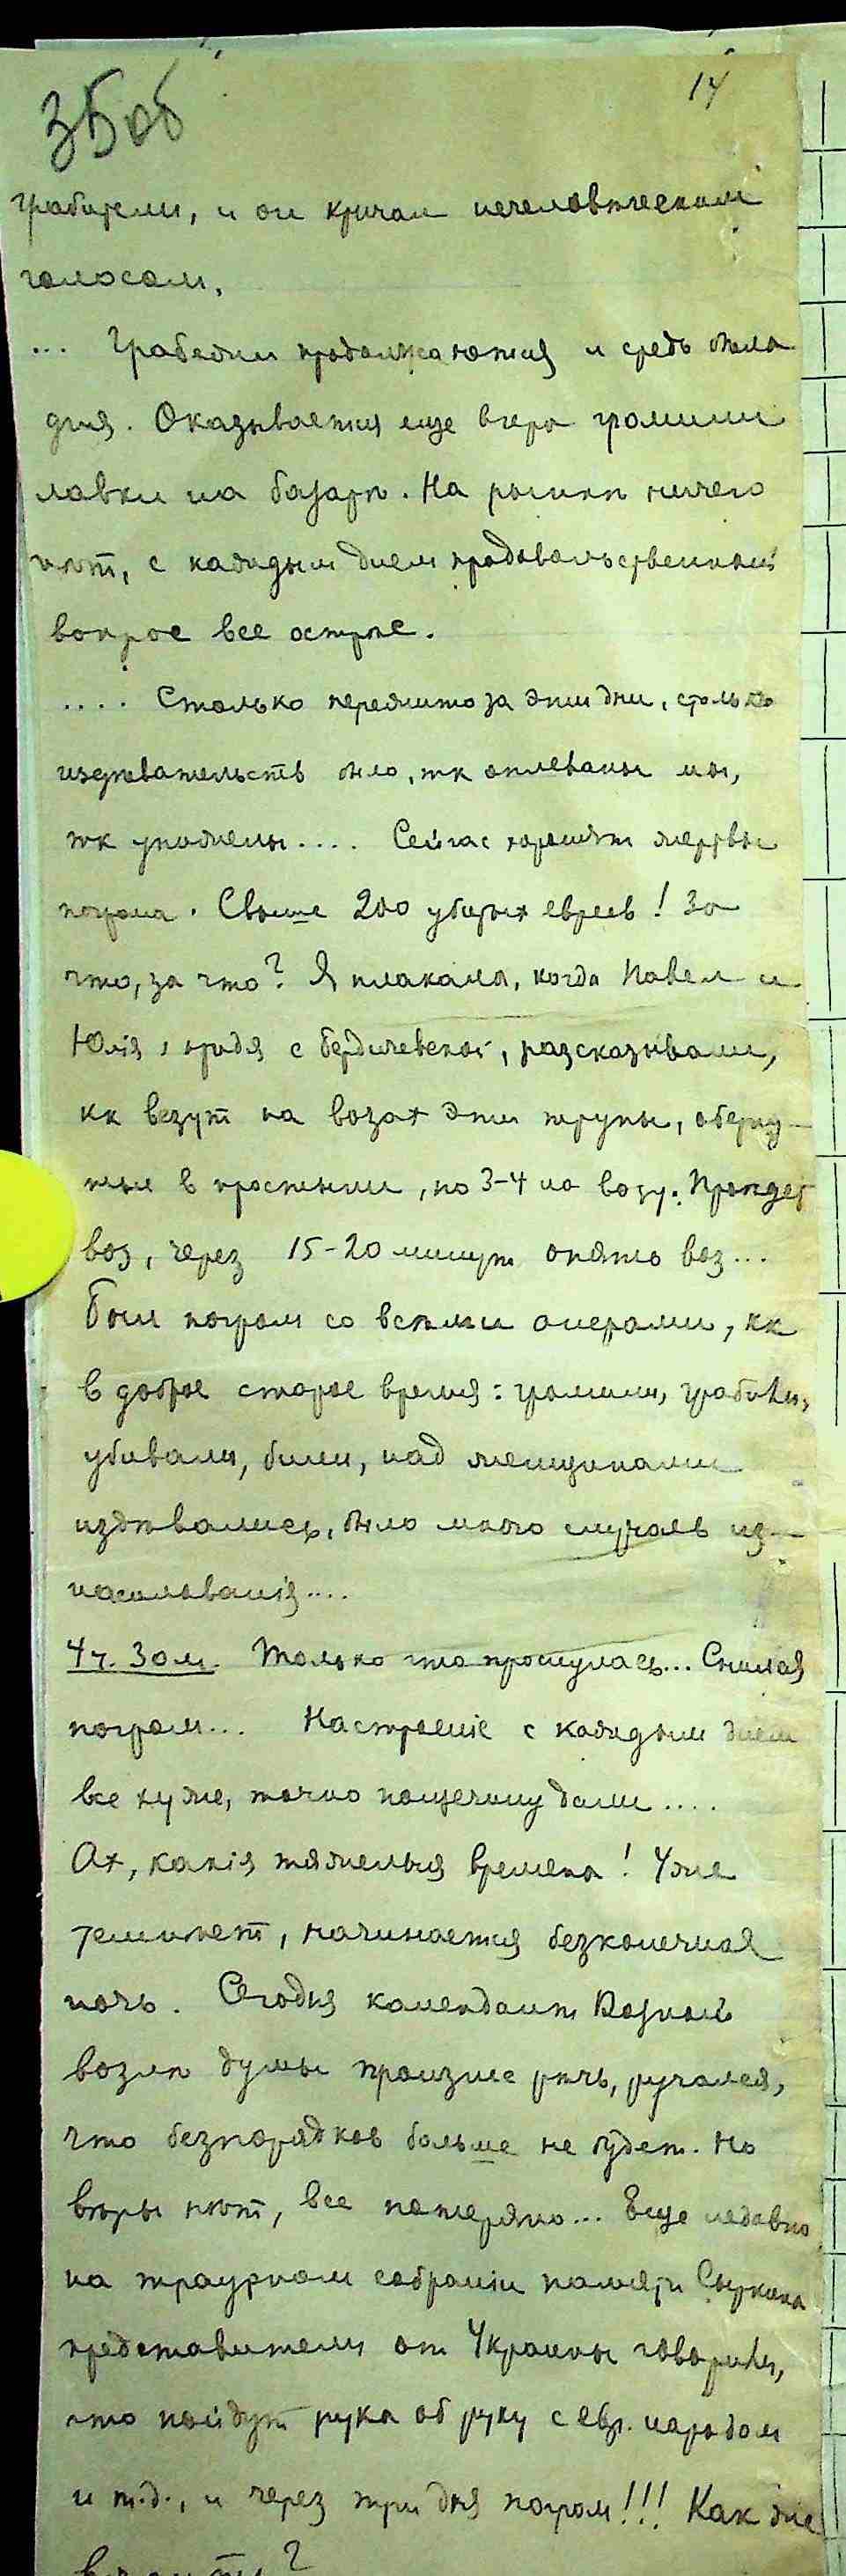 35об
14
грабители, и он кричал нечеловѣческим
голосом.
... Грабежи продолжаются и средь бѣла
дня. Оказывается еще вчера громили
лавки на базарѣ. На рынкѣ ничего
нѣт, с каждым днем продовольственный
вопрос все острѣе.
.... Столько пережито за эти дни, столько
издѣвательств было, тк оплеваны мы,
тк унижены.... Сейчас хоронят жертвы
погрома. Свыше 200 убитых евреев! За
что, за что? Я плакала, когда Павел и
Юлія, придя с Бердичевской, разсказывали,
кк везут на возах эти трупы, оберну-
тые в простыни, по 3-4 на возу. Пройдет
воз, через 15-20 минут опять воз...
Был погром со всѣми онерами, кк
в доброе старое время: громили, грабили,
убивали, били, над женщинами
издѣвались, было много случаев из-
насилованія....
4 ч. 30 м. Только что проснулась... Снился
погром... Настроеніе с каждым днем
все хуже, точно пощечину дали....
Ах, какія тяжелыя времена! Уже
темнѣет, начинается безконечная
ночь. Сегодня комендант Возный
возлѣ думы произнес рѣчь, ручался,
что безпорядков больше не будет. Но
вѣры нѣт, все потеряно... Еще недавно
на траурном собраніи памяти Сыркина
представители от Украины говорили,
что пойдут рука об руку с евр. народом
и т.д., и через три дня погром!!! Как же
вѣрить?